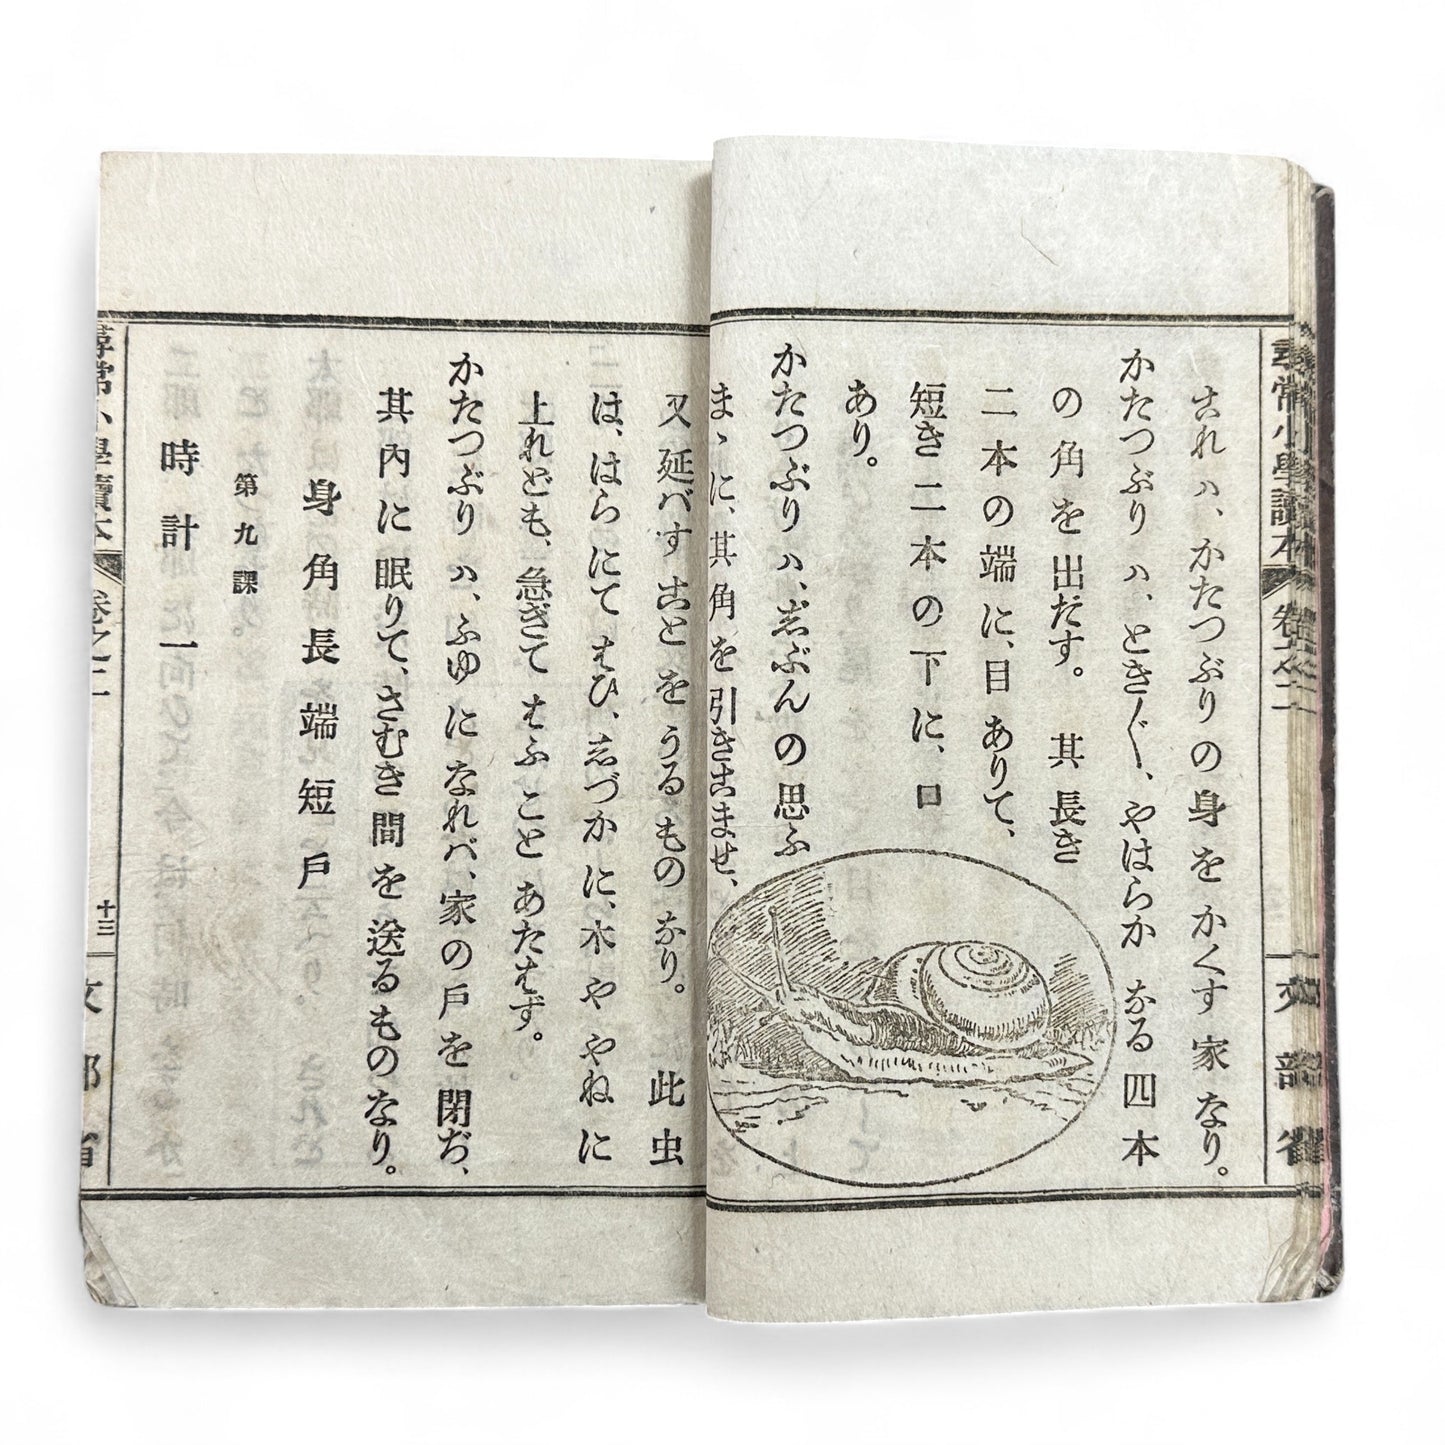 尋常小學讀本
卷之二
文部省
これハ、かたつぶりの身をかくす家なり。
かたつぶりハ、とき〲、やはらかなる四本
の角を出だす。其長き
二本の端に、目ありて、
短き二本の下に、口
あり。
かたつぶりハ、志ぶんの思ふ
まゝに、其角を引きこませ、
又延バすことをうるものなり。此虫
は、はらにてはひ、志づかに、木ややねに
上れども、急ぎてはふことあたはず。
かたつぶりハ、ふゆになれバ、家の戸を閉ぢ、
其内に眠りて、さむき間を送るものなり。
身角長端短戸
第九課
時計一
尋常小學讀本
卷之二
十三
文部省